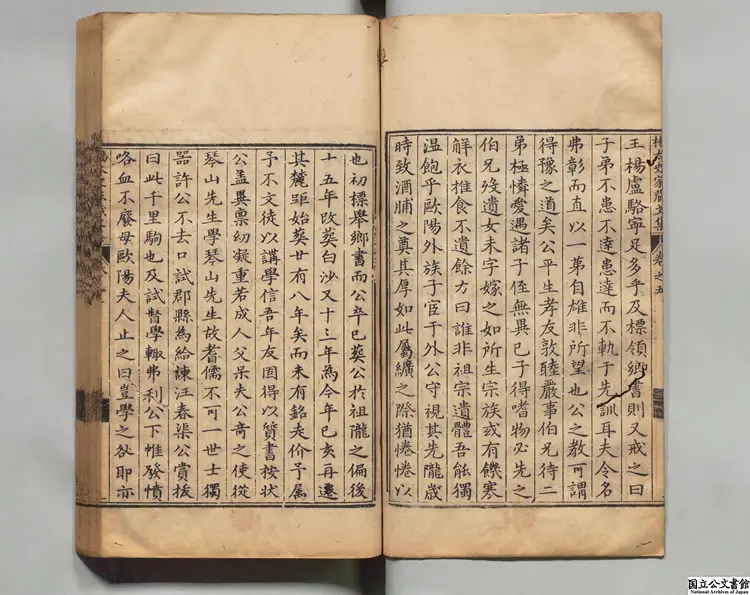 王楊盧駱寧足多乎及標領鄉書則又戒之曰
子弟不患不達患達而不軌于先訓耳夫令名
弗彰而直以一第自雄非所望也公之教可謂
得豫之道矣公平生孝友敦睦嚴事伯兄待二
弟極憐愛遇諸子侄無異己子得嗜物必先之
伯兄歿遺女未字嫁之如所生宗族或有饑寒
解衣推食不遺餘力曰誰非祖宗遺體吾能獨
溫飽乎歐陽外族子宦于外公守視其先隴歲
時致酒脯之奠其厚如此屬纊之際猶惓惓以
也初標舉鄉書而公卒已葵公於祖隴之偏後
十五年改葵白沙又十三年為今年己亥再遷
其麓距始葵廿有八年矣而未有銘走价予屬
予不文徒以講學信吾年友固得以質書按狀
公盖異禀幼凝重若成人父杲夫公奇之使從
琴山先生學琴山先生故耆儒不可一世士獨
器許公不去口試郡縣為給諫汪春渠公賞拔
曰此千里駒也及試督學輒弗利公下帷發憤
咯血不廢母歐陽夫人止之曰豈學之欲耶亦
卷之五
国立公文書館
National Archives of Japan